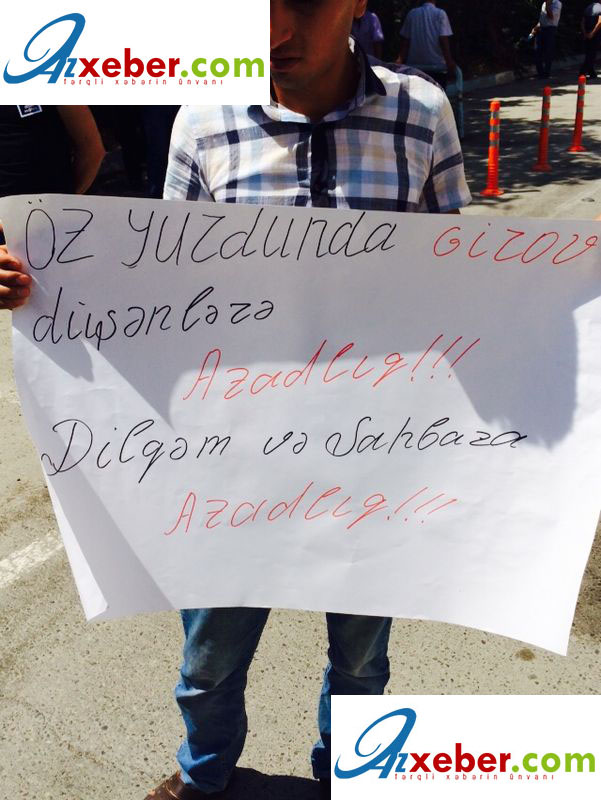 Azxeber.com
fərqli xəbərin ünvanı
Öz yurdunda Girov
düşənlərə
Azadlıq!!!
Dilqəm və Şahbaza
Azadlıq!!!
Azxeber.com
fərqli xəbərin ünvanı